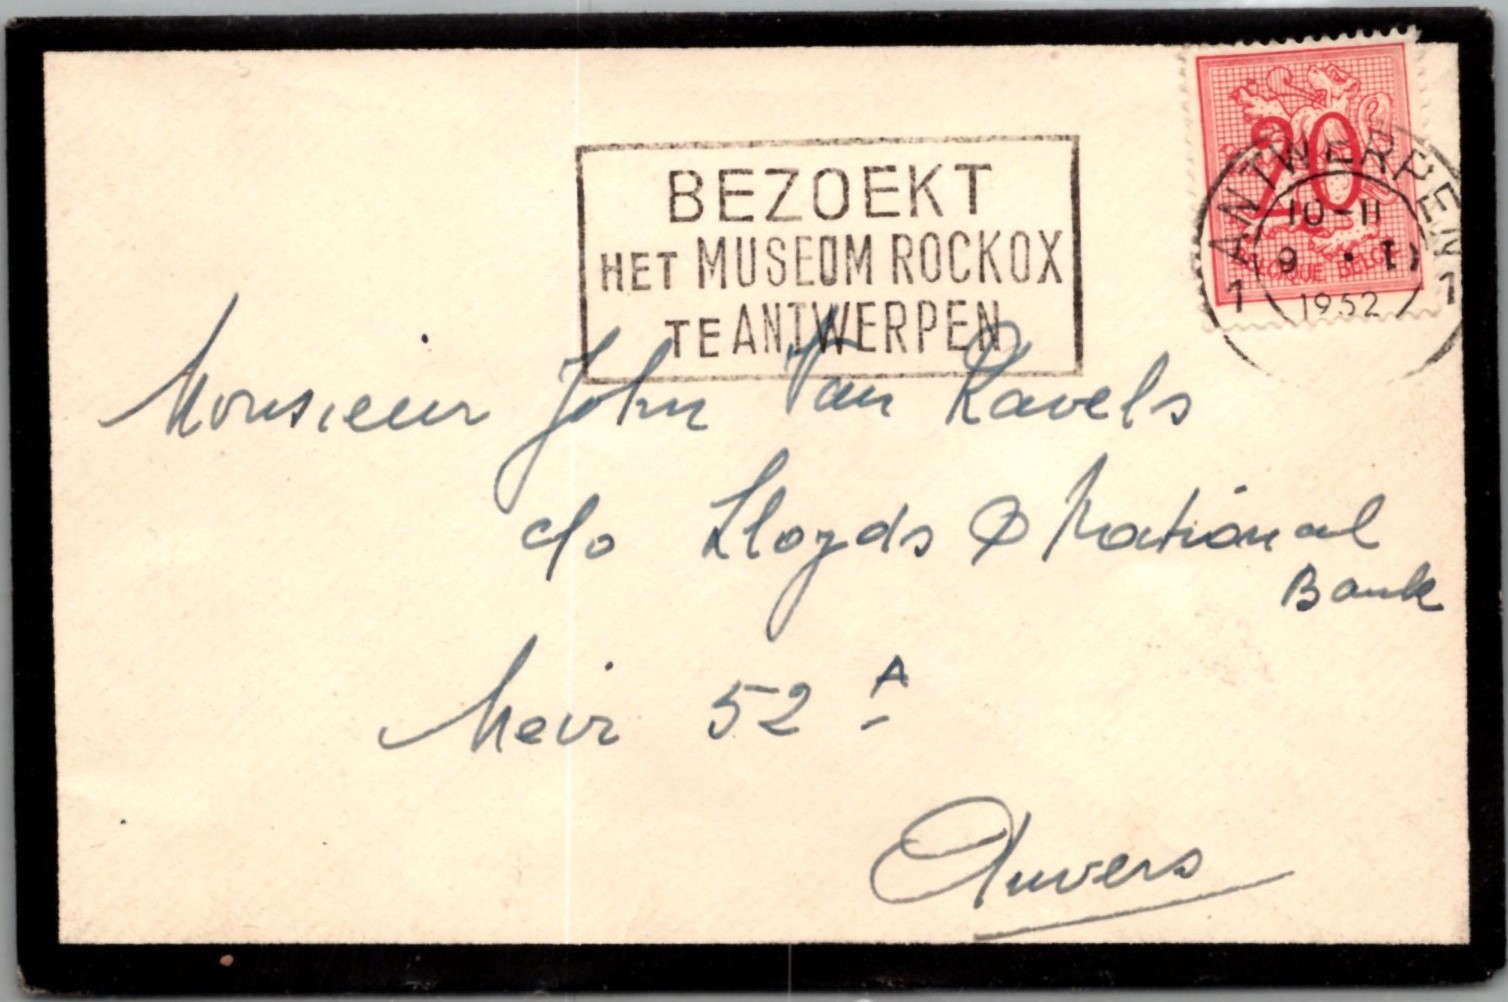 BEZOEKT
HET MUSEUM ROCKOX
TE ANTWERPEN
20
BELGIQUE BELGIË
ANTWERPEN
10-11
9
1952
1 1
Monsieur John Van Ravels
c/o Lloyds & National
Bank
Meir 52 A
Anvers